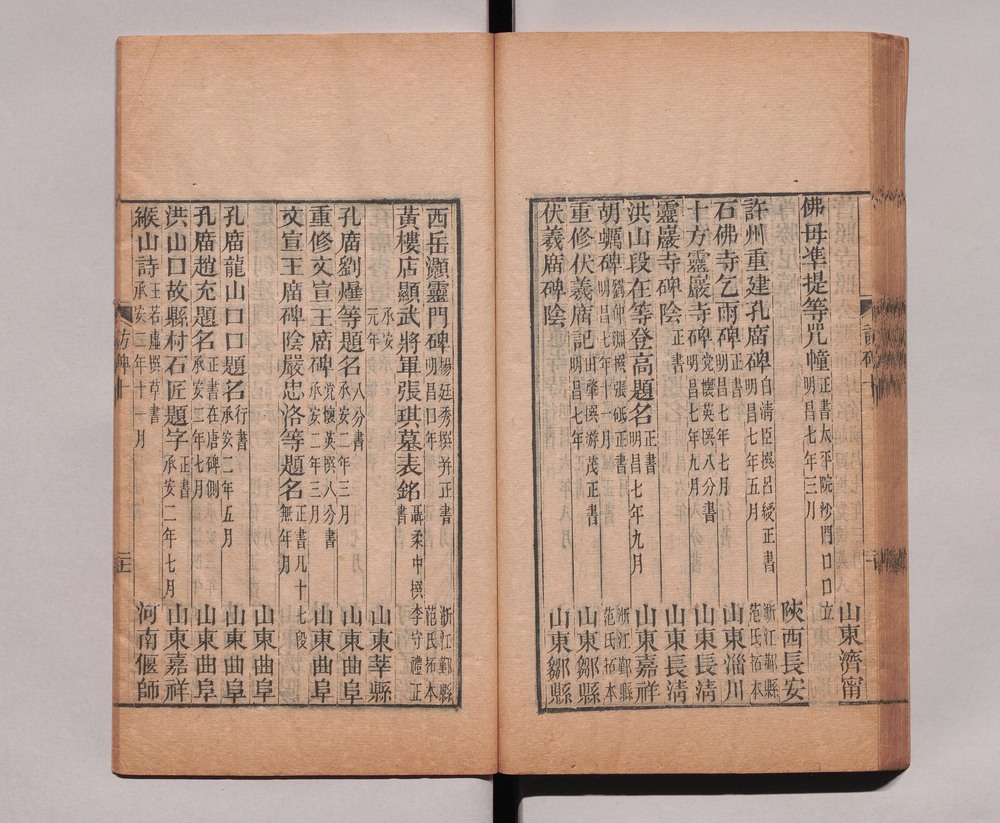 山東濟甯
佛毋準提等咒幢 正書太平院沙門口口立 明昌七年三月
陝西長安
許州重建孔廟碑 白清臣撰呂綬正書 明昌七年五月 浙江鄞縣范氏拓本
石佛寺乞雨碑 正書 明昌七年七月 山東淄川
十方靈巖寺碑 党懷英撰八分書 明昌七年九月 山東長清
靈巖寺碑陰 正書 山東長清
洪山段在等登高題名 正書 明昌七年九月 山東嘉祥
胡蠣碑 劉仲淵撰張砥正書 明昌七年十一月 浙江鄞縣范氏拓本
重修伏羲廟記 田肇撰游茂正書 明昌七年 山東鄒縣
伏羲廟碑陰 山東鄒縣
西岳灝靈門碑 楊廷秀撰并正書 明昌口年 浙江鄞縣范氏拓本
黃樓店顯武將軍張琪墓表銘 聶柔中撰李守禮正書
承安元年 山東莘縣
孔廟劉等題名 八分書 承安二年三月 山東曲阜
重修文宣王廟碑 党懷英撰八分書 承安二年三月 山東曲阜
文宣王廟碑陰嚴忠洛等題名 正書凡十七段 無年月
山東曲阜
孔廟龍山口口題名 行書 承安二年五月 山東曲阜
孔廟趙充題名 正書在唐碑側 承安二年七月 山東曲阜
洪山口故縣村石匠題字 正書 承安二年七月 山東嘉祥
緱山詩 王若虛撰草書 承安二年十一月 河南偃師